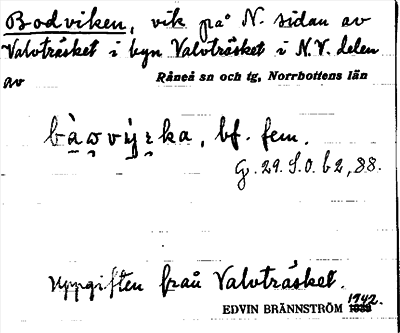 Bodviken, vik på N. sidan av
Valvträsket i byn Valvträsket i N.V. delen
av Råneå sn och tg, Norrbottens län
bf. fem.
G. 29. S.O. b2, 88.
Uppgiften från Valvträsket.
EDVIN BRÄNNSTRÖM 1942.